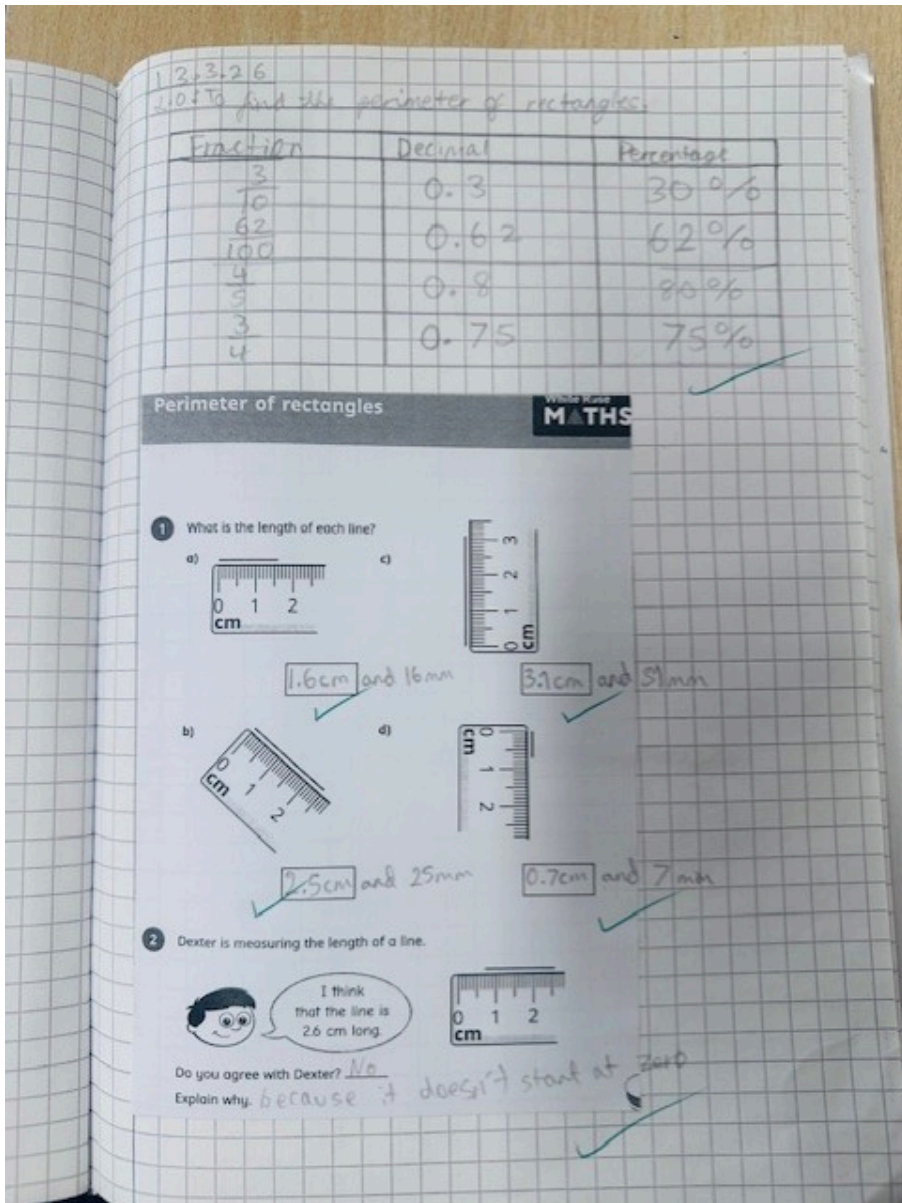 13.3.26
L.O: To find the perimeter of rectangles.
Fraction Decimal Percentage
3/10 0.3 30%
62/100 0.62 62%
4/5 0.8 80%
3/4 0.75 75%
Perimeter of rectangles
White Rose
MATHS
1 What is the length of each line?
a) c)
0 1 2
cm
0 1 2 3
cm
1.6cm and 16mm 3.1cm and 31mm
b) d)
0 1 2
cm
0 1 2
cm
2.5cm and 25mm 0.7cm and 7mm
2 Dexter is measuring the length of a line.
I think
that the line is
2.6 cm long.
0 1 2
cm
Do you agree with Dexter? No
Explain why. because it doesn't start at zero